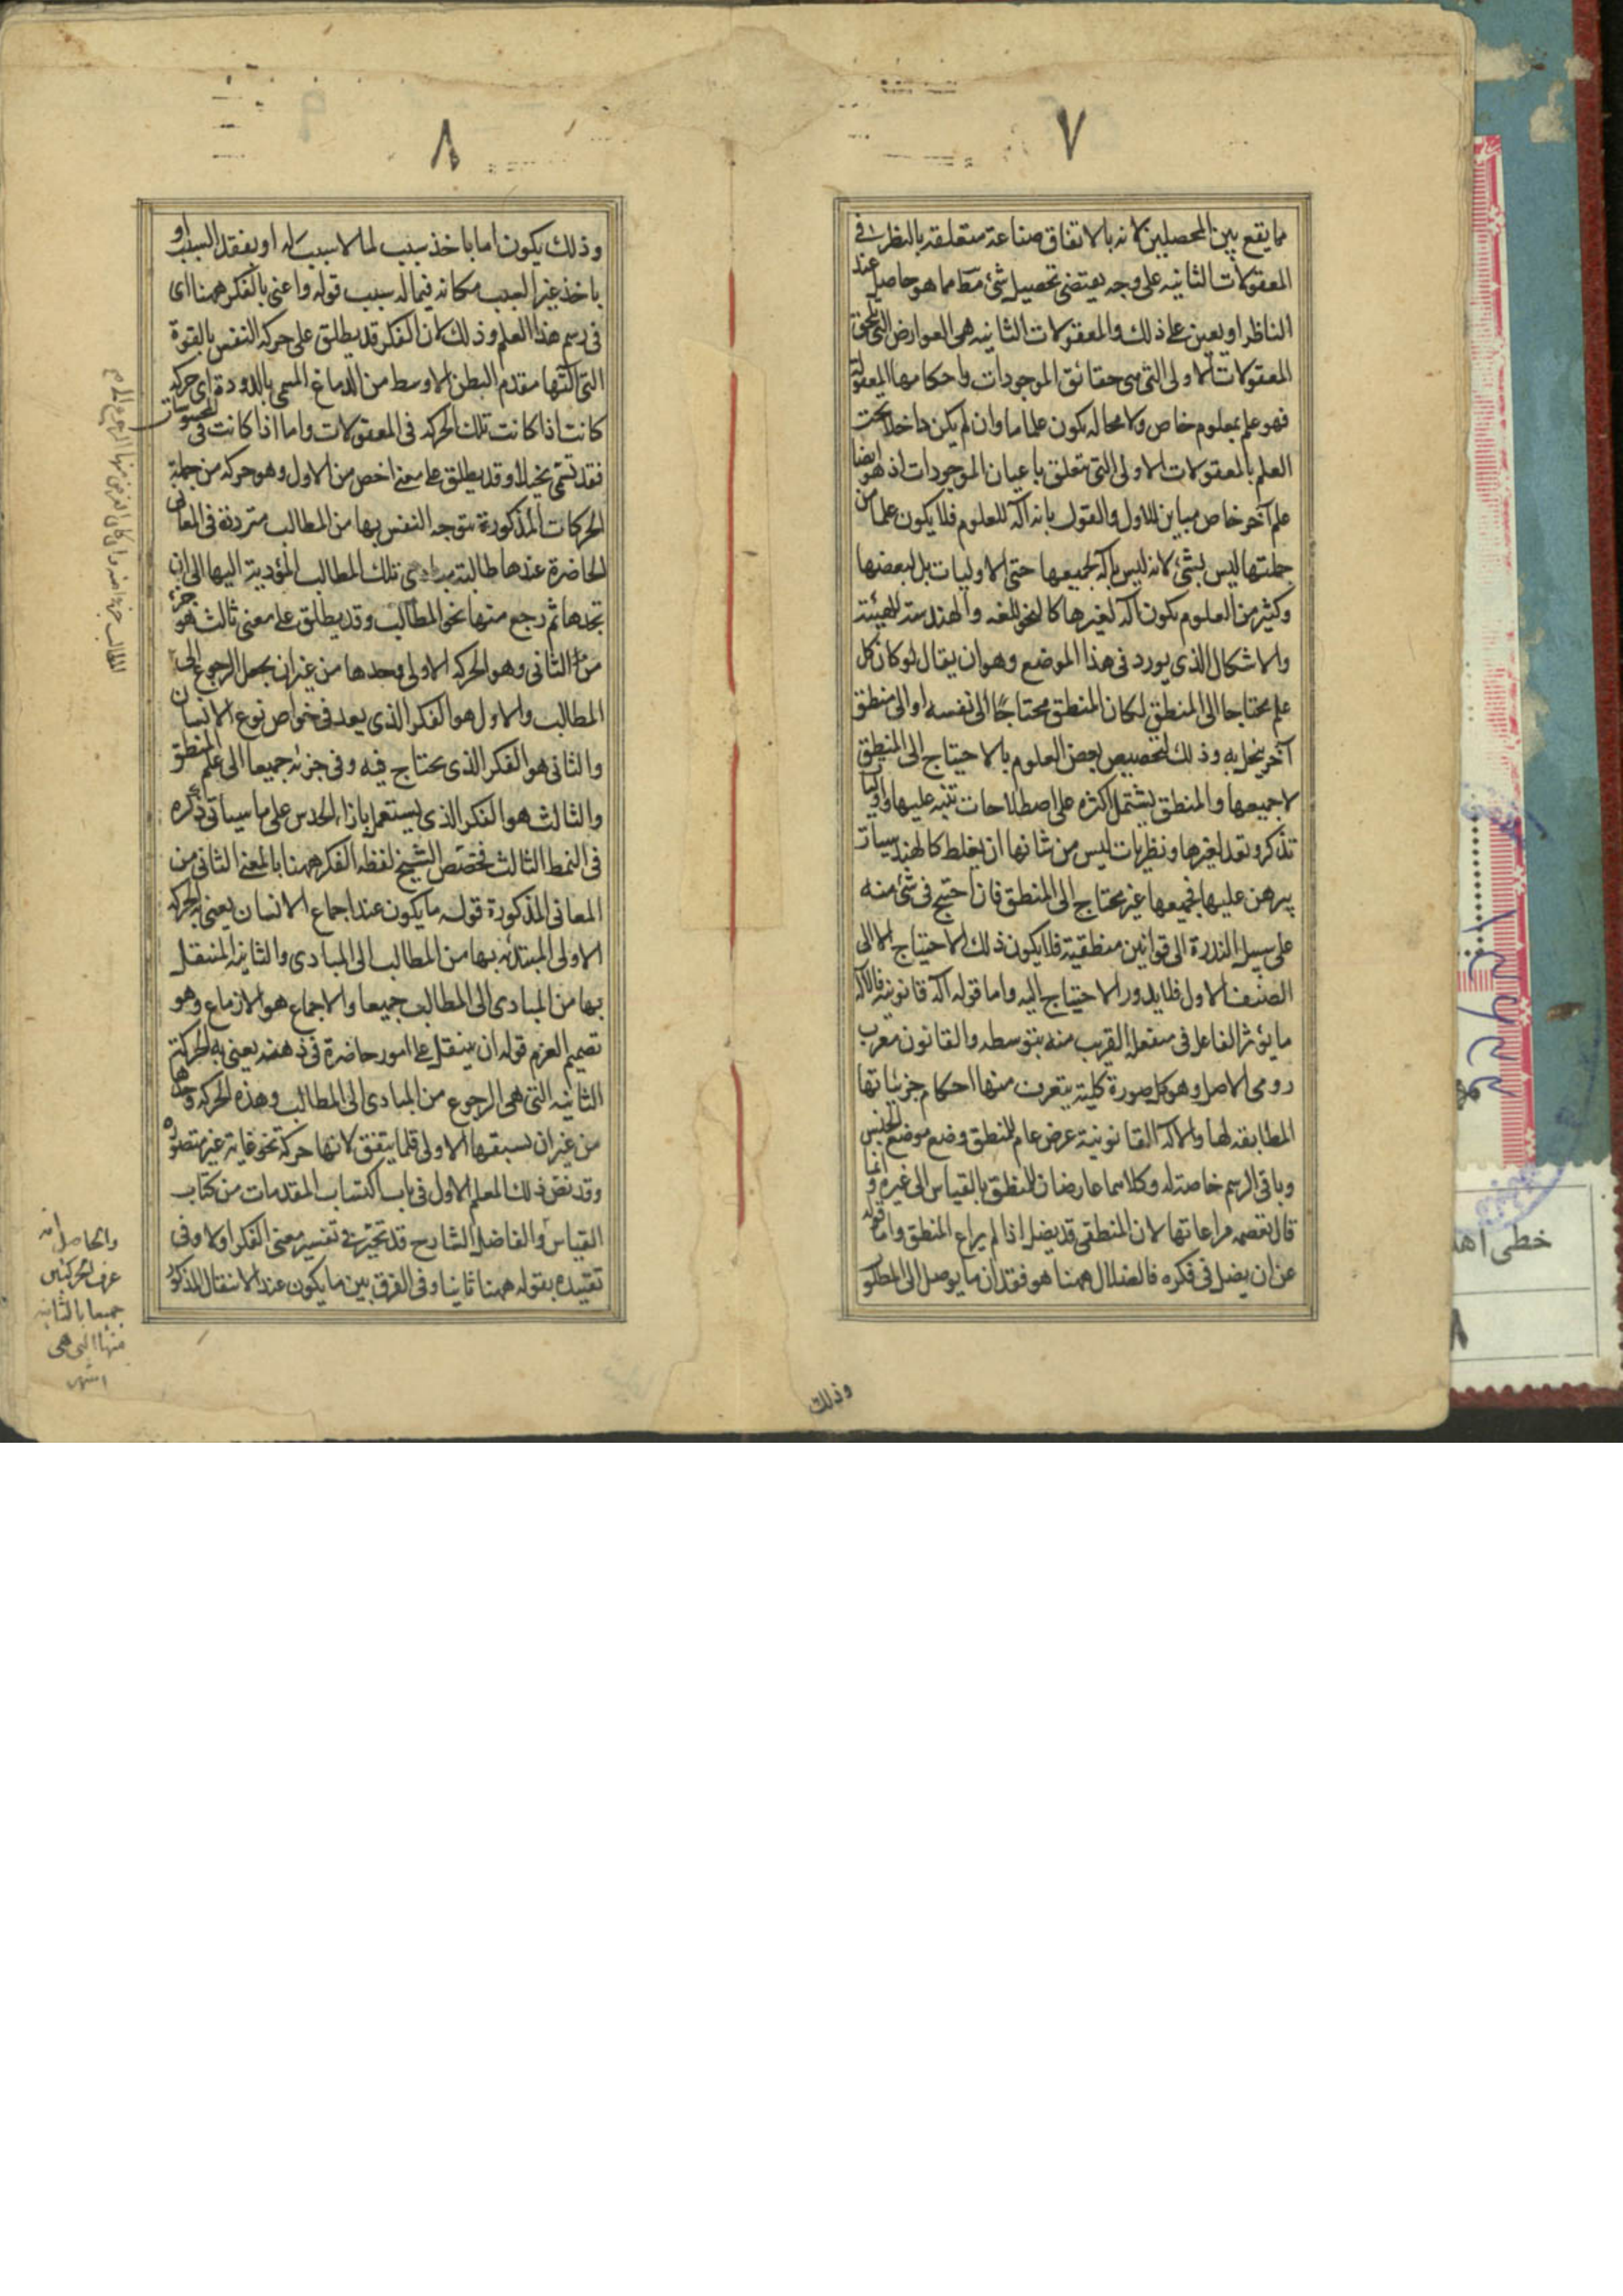 ٧
مما يقع بين المحصلين لانه بالاتفاق صناعة متعلقه بالنظر فى
المعقولات الثانيه على وجه يقتضى تحصيل شئ مطـ مما هو حاصل عند
الناظر او يعين على ذلك والمعقولات الثانيه هى العوارض التى تلحق
المعقولات الاولى التى هى حقائق الموجودات واحكامها المعقولة
فهو علم بمعلوم خاص ولا محاله يكون علما ما وان لم يكن داخلا تحت
العلم بالمعقولات الاولى التى تتعلق باعيان الموجودات اذ هو ايضا
علم آخر خاص مباين للاول والقول بانه آله للعلوم فلا يكون علما من
جملتها ليس بشئ لانه ليس بآله لجميعها حتى الاوليات بل لبعضها
وكثير من العلوم يكون آله لغيرها كالنحو للغه والهندسة للهيئة
والاشكال الذى يورد فى هذا الموضع وهو ان يقال لو كان كل
علم محتاجا الى المنطق لكان المنطق محتاجًا الى نفسه او الى منطق
آخر ينحل به وذلك لتخصيص بعض العلوم بالاحتياج الى المنطق
لا جميعها والمنطق يشتمل اكثره على اصطلاحات تنبه عليها واوليات
تذكر وتعد لغيرها ونظريات ليس من شانها ان يغلط كالهندسيات
يبرهن عليها فجميعها غير محتاج الى المنطق فان احتيج فى شئ منه
على سبيل الندرة الى قوانين منطقية فلا يكون ذلك الاحتياج الا الى
الصنف الاول فلا يدور الاحتياج اليه واما قوله آله قانونيه فالآله
ما يؤثر الفاعل فى منفعله القريب منه بتوسطه والقانون معرب
رومى الاصل وهو كل صورة كلية يتعرف منها احكام جزئياتها
المطابقه لها والآله القانونية عرض عام للمنطق وضع موضع الجنس
وباقى الرسم خاصة له وكلاهما عارضان للمنطق بالقياس الى غيره وانما
قال تعصمه مراعاتها لان المنطقى قد يضل اذا لم يراع المنطق واما قوله
عن ان يضل فى فكره فالضلال ههنا هو فقدان ما يوصل الى المطلوب
وذلك
٨
وذلك يكون اما باخذ سبب لما لا سبب له او بفقد السبب او
باخذ غير السبب مكانه فيما له سبب قوله واعنى بالفكر ههنا اى
فى رسم هذا العلم وذلك لان الفكر قد يطلق على حركه النفس بالقوة
التى آلتها مقدم البطن الاوسط من الدماغ المسمى بالدودة اى حركه
كانت اذا كانت تلك الحركه فى المعقولات واما اذا كانت فى المحسوسات
فقد تسمى تخيلا وقد يطلق على معنى اخص من الاول وهو حركه من جملة
الحركات المذكورة تتوجه النفس بها من المطالب مترددة فى المعانى
الحاضرة عندها طالبة مبادى تلك المطالب المؤدية اليها الى ان
تجدها ثم ترجع منها نحو المطالب وقد يطلق على معنى ثالث هو جزء
من الثانى وهو الحركه الاولى وحدها من غير ان يجعل الرجوع الى
المطالب والاول هو الفكر الذى يعد فى خواص نوع الانسان
والثانى هو الفكر الذى يحتاج فيه وفى جزئه جميعا الى علم المنطق
والثالث هو الفكر الذى يستعمل بازاء الحدس على ما سيأتى ذكره
فى النمط الثالث فخصص الشيخ لفظه الفكر ههنا بالمعنى الثانى من
المعانى المذكورة قوله ما يكون عند اجماع الانسان يعنى به الحركه
الاولى المبتدئه بها من المطالب الى المبادى والثانيه المنتقل
بها من المبادى الى المطالب جميعا والاجماع هو الازماع وهو
تصميم العزم قوله ان ينتقل عن امور حاضرة فى ذهنه يعنى به الحركة
الثانيه التى هى الرجوع من المبادى الى المطالب وهذه الحركه وحدها
من غير ان تسبقها الاولى قلما يتفق لانها حركة نحو غاية غير متصورة
وقد نص ذلك المعلم الاول فى باب اكتساب المقدمات من كتاب
القياس والفاضل الشارح قد تحيّر فى تفسير معنى الفكر اولا وفى
تقييده بقوله ههنا ثانيا وفى الفرق بين ما يكون عند الانتقال المذكور
والحاصل انه
عرف الحركتين
جميعا بالثانيه
منهما التى هى
اشهر
خطى اهد